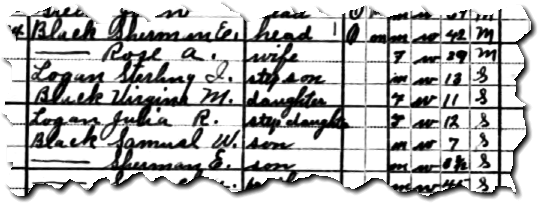 head m w 37 M
4 Black Sherman E. head 1 O m m w 42 M
—— Rose A. wife F w 39 M
Logan Sterling I. step son m w 13 S
Black Virginia M. daughter F w 11 S
Logan Julia R. step daughter F w 12 S
Black Samuel W. son m w 7 S
—— Sherman E. son m w S
m w S